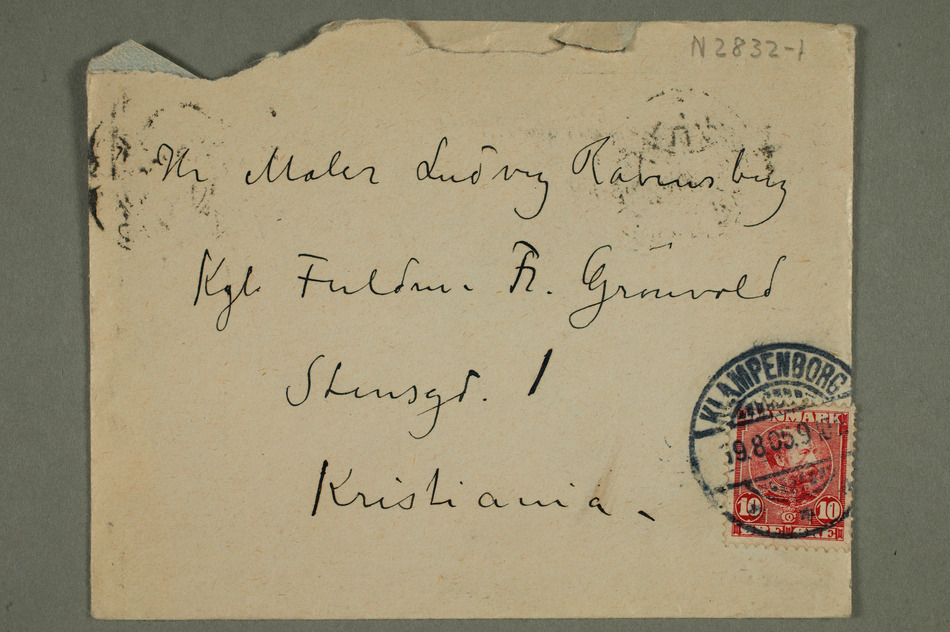 N 2832-1
Hr Maler Ludvig Ravensberg
Kgl. Fuldm. Fr. Grönvold
Stensgd. 1
Kristiania.
KLAMPENBORG
9.8.05.9
DANMARK
10 10